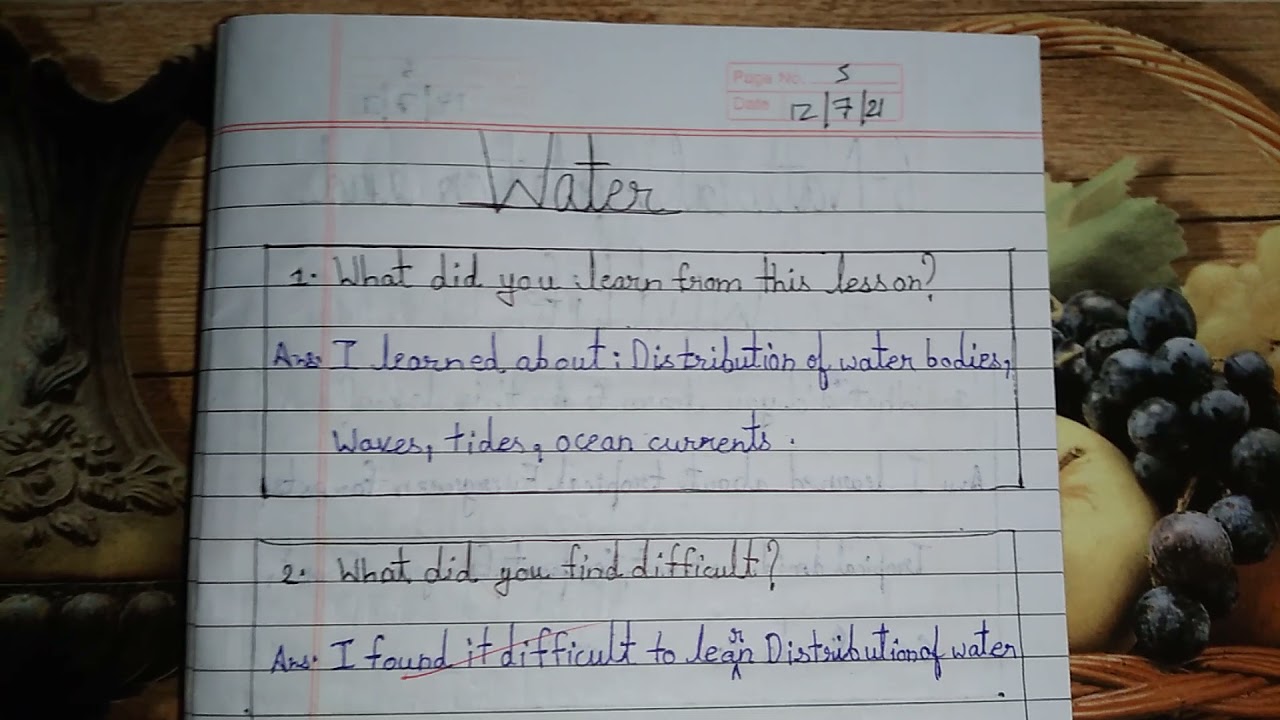 Page No. 5
Date 12/7/21
Water
1. What did you learn from this lesson?
Ans. I learned about: Distribution of water bodies,
Waves, tides, ocean currents.
2. What did you find difficult?
Ans. I found it difficult to learn Distribution of water